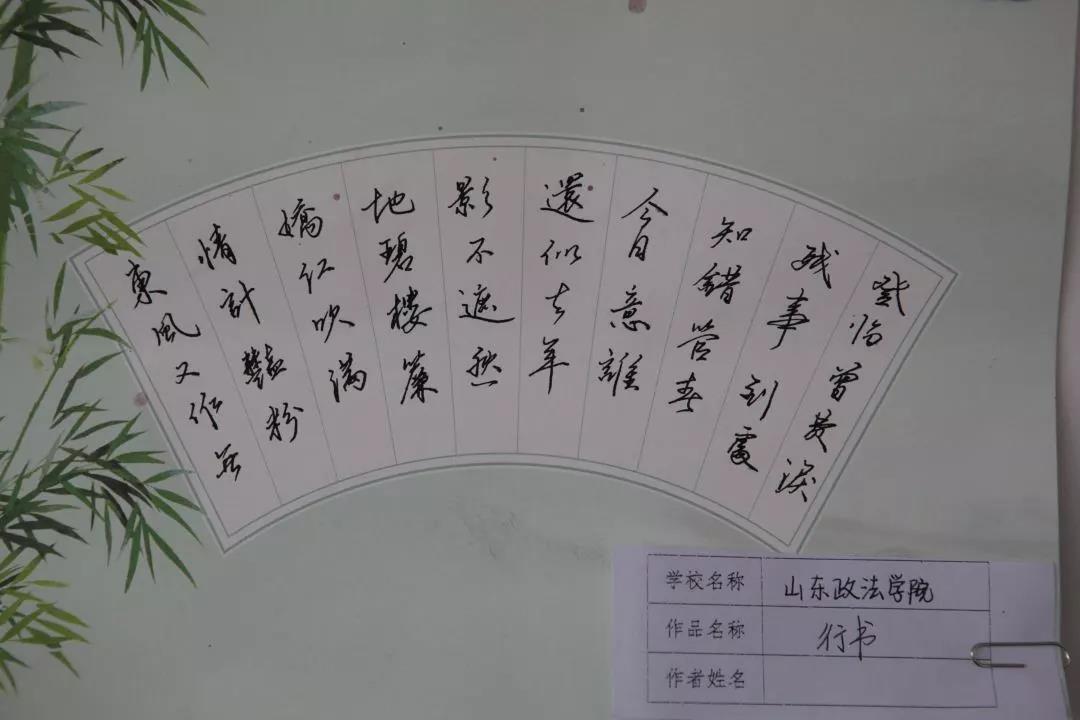 東風又作無
情計豔粉
嬌红吹满
地碧樓簾
影不遮愁
還似去年
今日意誰
知錯管春
残事到處
登临曾费淚
学校名称 山东政法学院
作品名称 行书
作者姓名